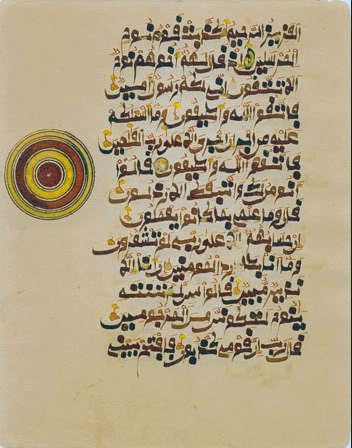 العزيز الرحيم كذبت قوم نوح
المرسلين إذ قال لهم أخوهم نوح
ألا تتقون إني لكم رسول أمين
فاتقوا الله وأطيعون وما أسئلكم
عليه من أجر إن أجري إلا على رب العلمين
فاتقوا الله وأطيعون قالوا
أنومن لك واتبعك الارذلون
قال وما علمي بما كانوا يعملون
إن حسابهم إلا على ربي لو تشعرون
وما أنا بطارد المومنين إن أنا إلا
نذير مبين قالوا لئن لم تنته
ينوح لتكونن من المرجومين
قال رب إن قومي كذبون فافتح بيني